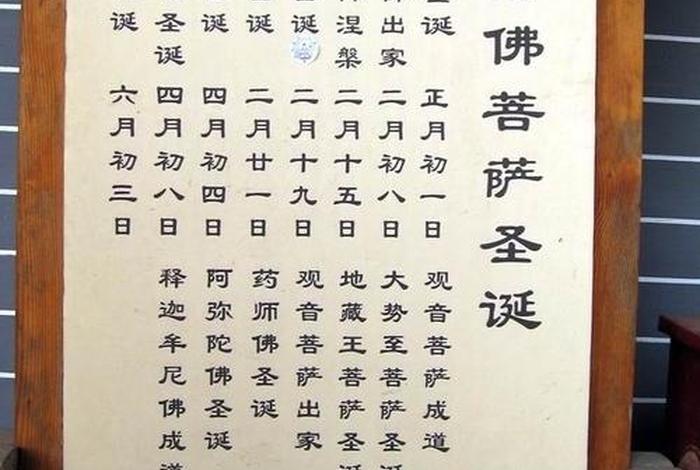 佛菩萨圣诞
诞 正月初一日 观音菩萨成道
出家 二月初八日 大势至菩萨圣诞
涅槃 二月十五日 地藏王菩萨圣诞
诞 二月十九日 观音菩萨出家
诞 二月廿一日 药师佛圣诞
诞 四月初四日 阿弥陀佛圣诞
圣诞 四月初八日 释迦牟尼佛成道
诞 六月初三日